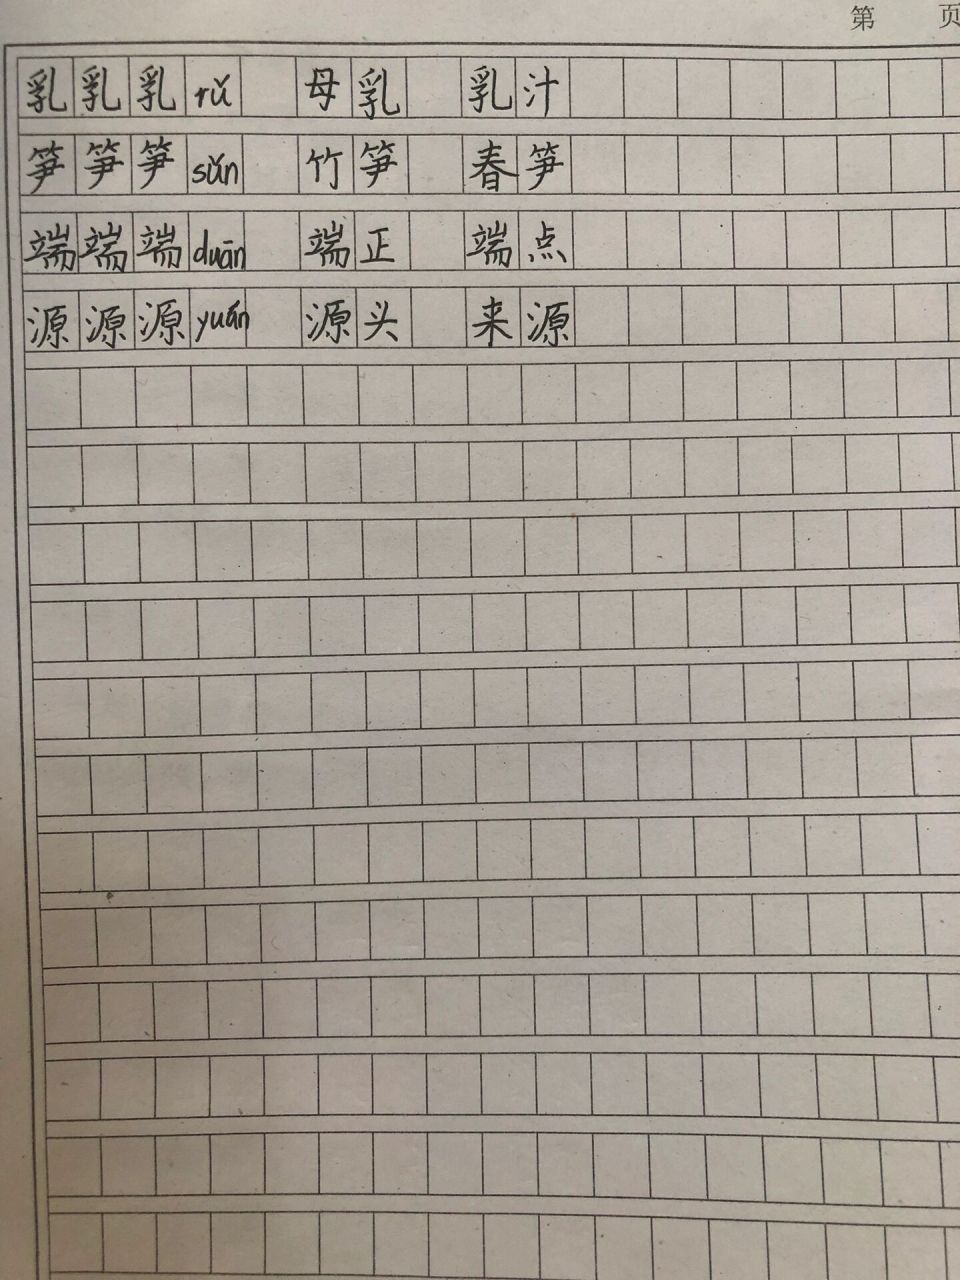 第 页
乳乳乳rǔ 母乳 乳汁
笋笋笋sǔn 竹笋 春笋
端端端duān 端正 端点
源源源yuán 源头 来源